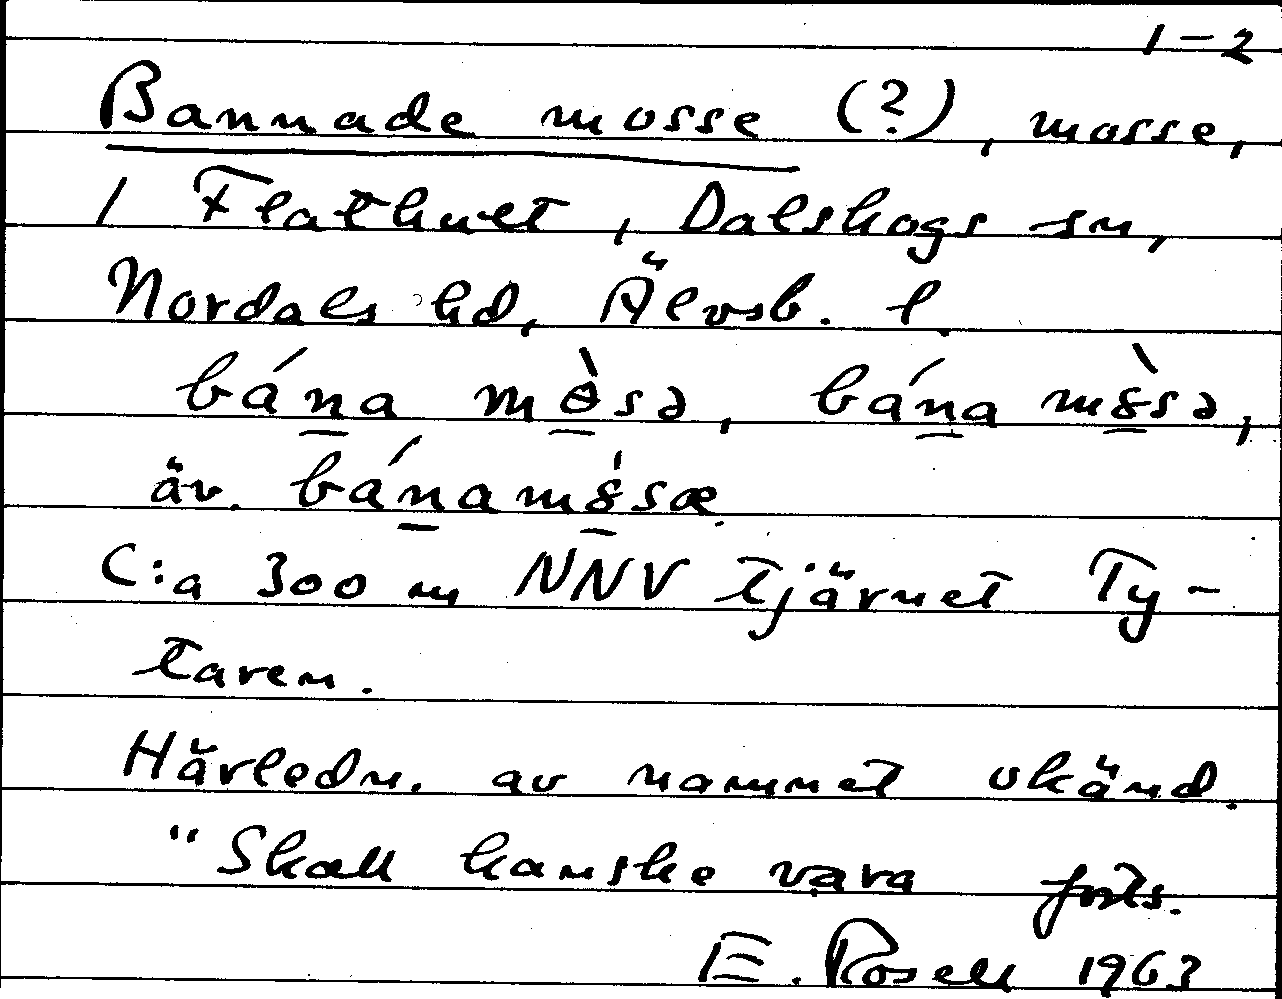 1-2
Bannade mosse (?), mosse,
1 Flathult, Dalskogs sn,
Nordals hd, Älvsb. l.
bána mòsə, bána m8̀sə,
äv. bánam8́sæ.
C:a 300 m NNV tjärnet Ty-
taren.
Härledn. av namnet okänd.
"Skall kanske vara forts.
E. Rosell 1963